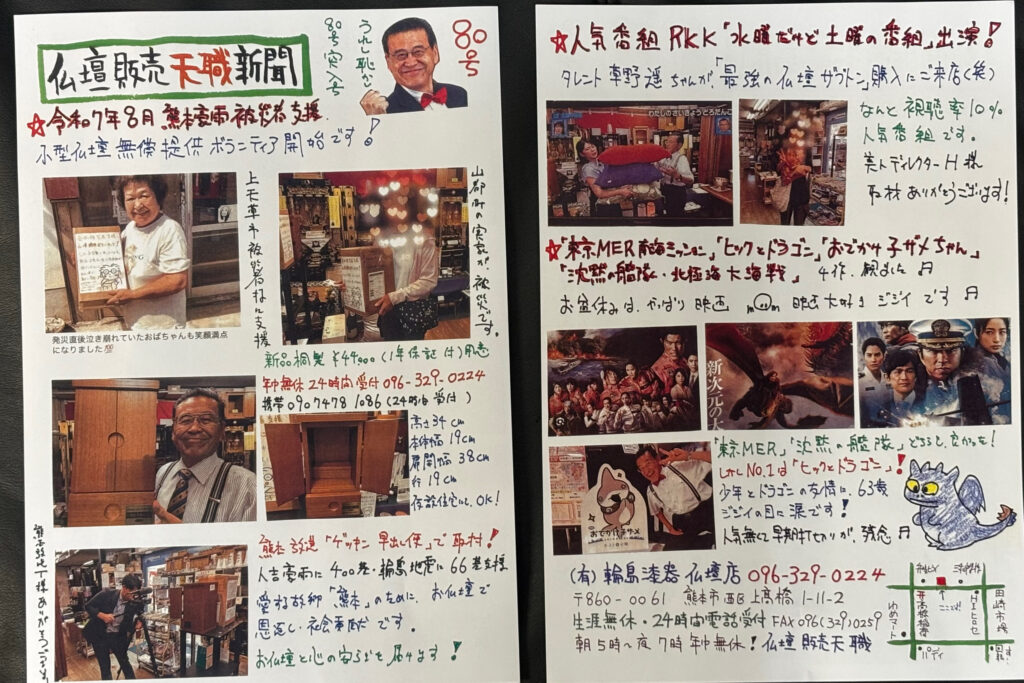 仏壇販売天職新聞
うれし恥かし
80号突入号
80号
☆令和7年8月 熊本豪雨被災者支援
小型仏壇無償提供ボランティア開始です!
上天草市被災者様に支援
山都町の実家が被災です。
発災直後泣き崩れていたおばちゃんも笑顔満点
になりました
新品桐製 ¥44,000 (1年保証付)用意
年中無休24時間受付 096-329-0224
携帯 090 7478 1086 (24時間受付)
高さ34cm
本体幅19cm
扉開幅38cm
行19cm
仮設住宅にも、OK!
熊本放送「ゲツキン早出し便」で取材!
人吉豪雨に400基・輪島地震に66基支援
愛する故郷「熊本」のために、お仏壇で
恩返し・社会奉仕です。
お仏壇と心の安らぎを届けます!
☆人気番組RKK「水曜だけど土曜の番組」出演!
タレント草野遥ちゃんが、「最強の仏壇ザブトン」購入にご来店(笑)
わたしのさいきょうとろだんこ
なんと視聴率10%
人気番組です。
美人ディレクターH様
取材ありがとうございます!
☆「東京MER 南海ミッション」「ヒックとドラゴン」「おでかけ子ザメちゃん」
「沈黙の艦隊・北極海大海戦」4作、観ました♬
お盆休みは、やっぱり映画 映画大好きジジイです♬
新次元の
「東京MER」「沈黙の艦隊」どちらも、良かったな!
しかしNo.1は「ヒックとドラゴン」!
少年とドラゴンの友情に、63歳
ジジイの目に涙です!
人気無くて早期打ち切りが、残念♬
おでかけ子ザメ
(有)輪島漆器仏壇店 096-329-0224
〒860-0061 熊本市西区上高橋1-11-2
生涯無休・24時間電話受付 FAX 096(329)0259
朝5時〜夜7時年中無休!仏壇販売天職
ここです!
高橋稲荷
ゆめマート
ヒロセ
田崎市場